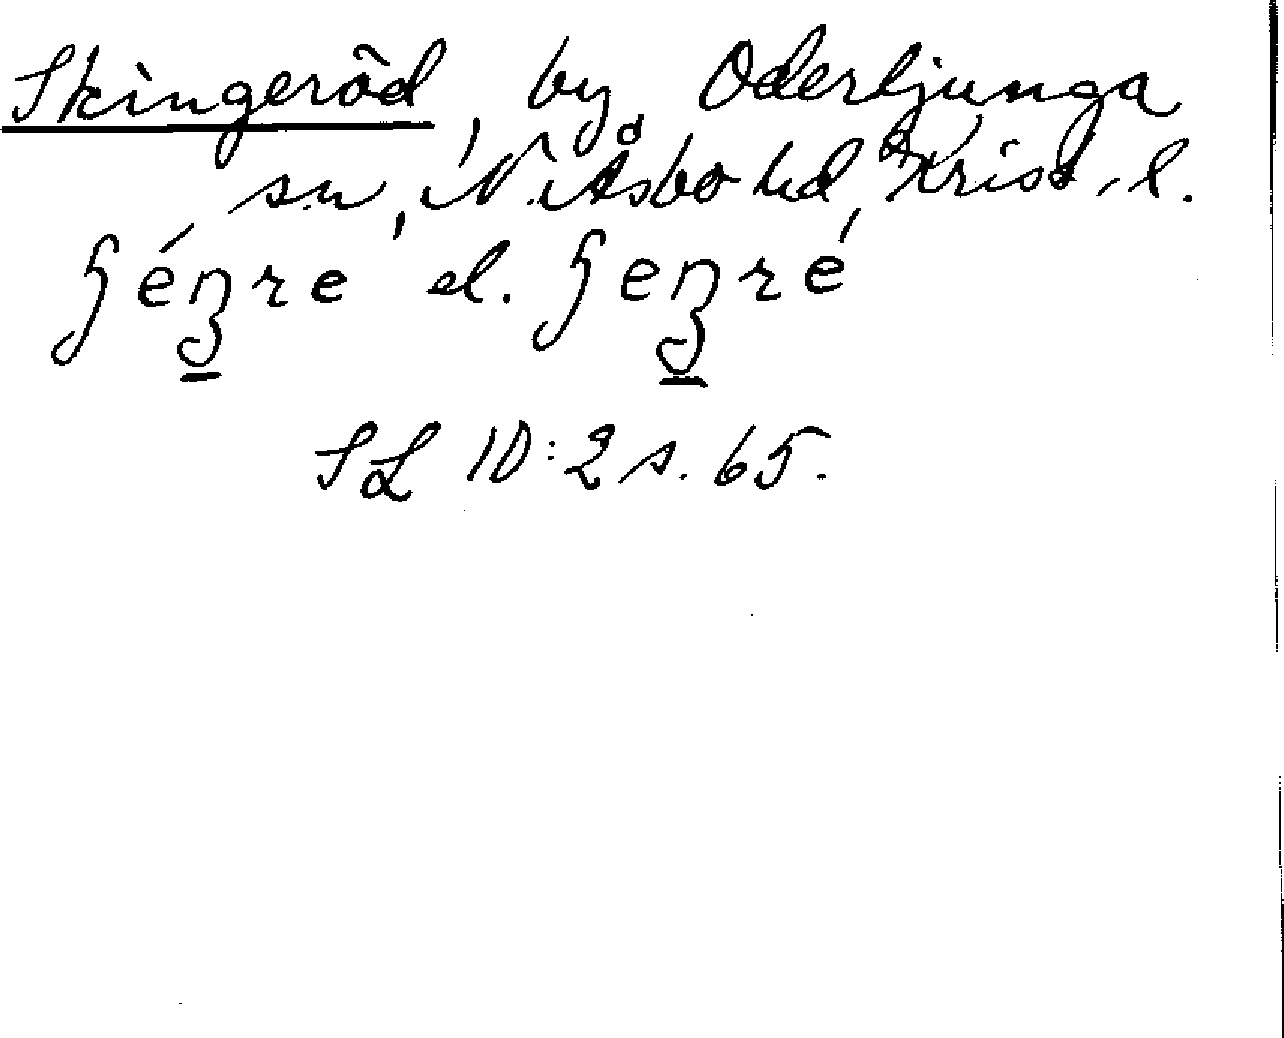 Skingeröd, by, Oderljunga
sn, N. Åsbo hd, Krist. l.
ʃéŋre el. ʃeŋré
SL 10:2 s. 65.